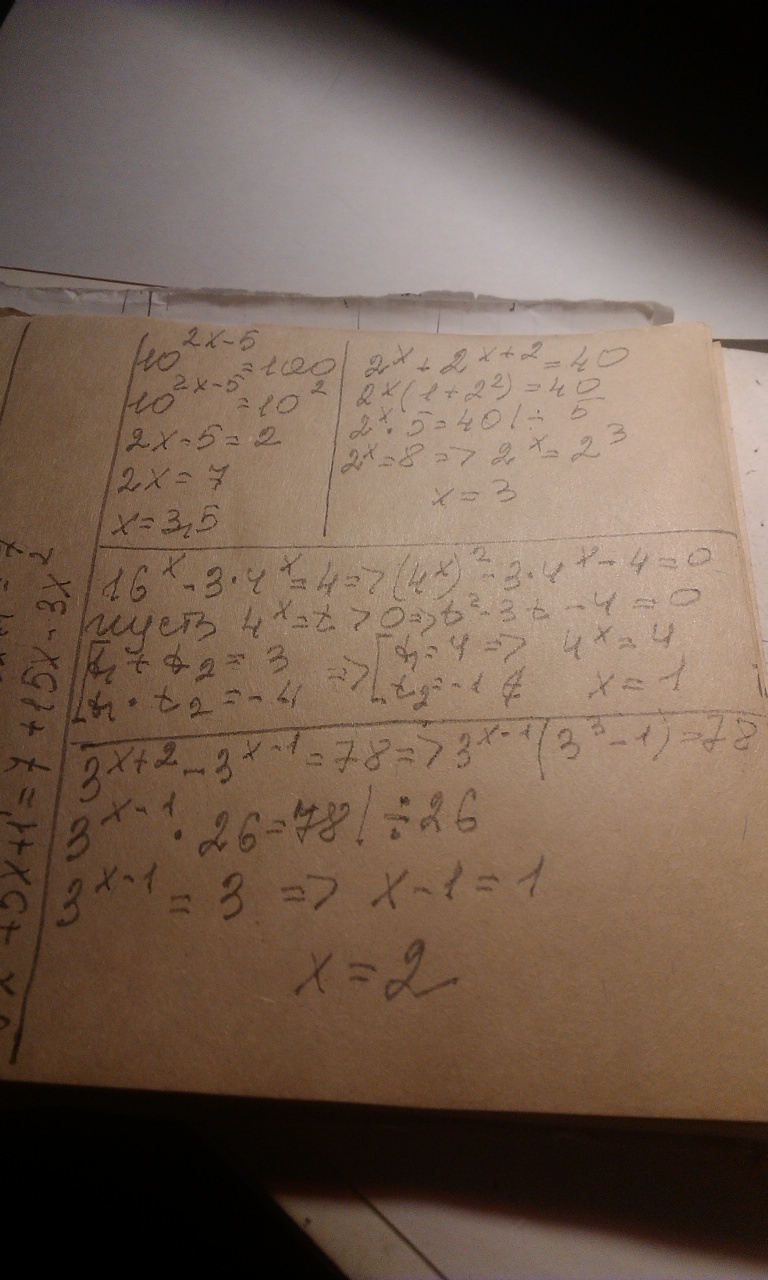 10^{2x-5}=100
10^{2x-5}=10^2
2x-5=2
2x=7
x=3,5
2^x+2^{x+2}=40
2^x(1+2^2)=40
2^x·5=40 |÷ 5
2^x=8 => 2^x=2^3
x=3
16^x-3·4^x=4=>(4^x)^2-3·4^x-4=0
пусть 4^x=t>0=>t^2-3t-4=0
t_1+t_2=3 => t_1=4 => 4^x=4
t_1·t_2=-4 t_2=-1 ∉ x=1
3^{x+2}-3^{x-1}=78=>3^{x-1}(3^3-1)=78
3^{x-1}·26=78 |÷26
3^{x-1}=3 => x-1=1
x=2
+5x+1=7+15x-3x^2